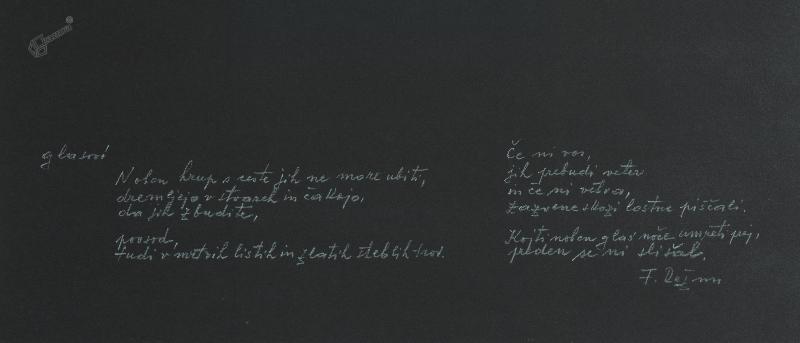 glasovi
Noben hrup s ceste jih ne more ubiti,
dremljejo v stvareh in čakajo,
da jih zbudite,
povsod,
tudi v mrtvih listih in zlatih steblih trav.
Če ni vas,
jih prebudi veter
in če ni vetra,
zazvene skozi lastne piščali.
Kajti noben glas noče umreti prej,
preden se ni slišal.
F.